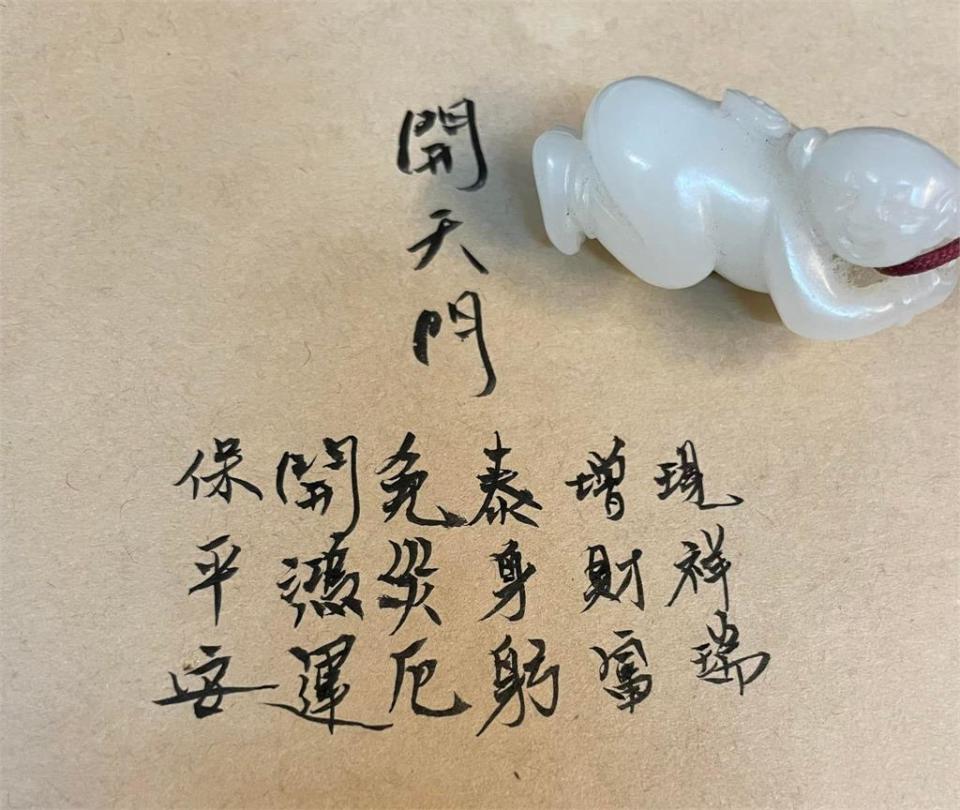 開天門
現祥瑞
增財富
泰身躬
免災厄
開鴻運
保平安